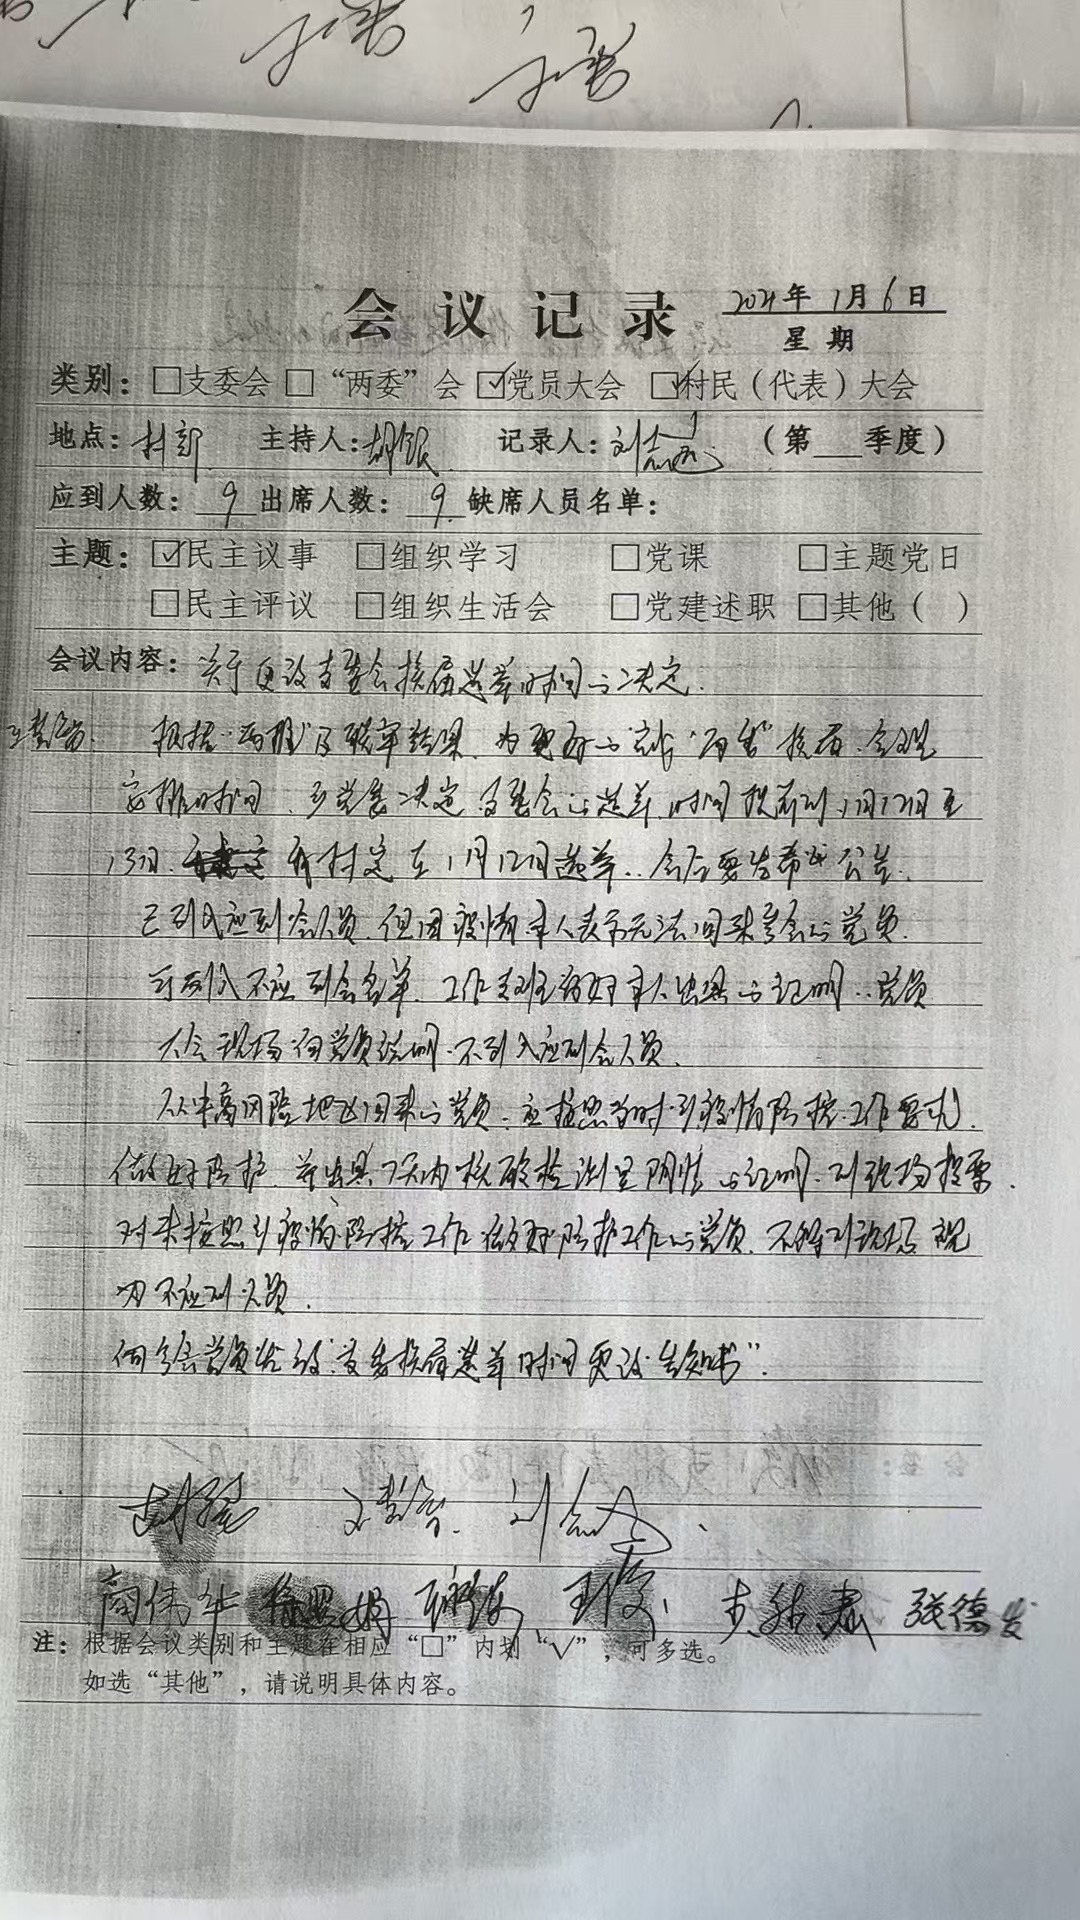 会议记录 2021年1月6日
星期
类别：□支委会 □“两委”会 ☑党员大会 ☑村民（代表）大会
地点：村部 主持人：胡银 记录人：刘志远 （第 季度）
应到人数：9 出席人数：9 缺席人员名单：
主题：☑民主议事 □组织学习 □党课 □主题党日
□民主评议 □组织生活会 □党建述职 □其他（ ）
会议内容：关于更改支委会换届选举时间的决定.
根据“两推”及联审结果，为更好的完成“两委”换届，合理
安排时间，乡党委决定，支委会的选举时间提前到1月12日至
13日， 我村定在1月12日选举..会后要发布公告.
已列入应到会人员，但因疫情本人表示无法回来参会的党员.
可列入不应到会名单，工作 本人出具的证明..党员
大会现场向党员说明.不列入应到会人员.
从中高风险地区回来的党员：应按照当时乡疫情防控工作要求，
做好防护，并出具7天内核酸检测呈阴性的证明.到现场投票.
对未按照乡疫情防控工作做好防护工作的党员，不得到现场，视
为不应到人员.
向全体党员发放“支委换届选举时间更改告知书”.
刘志远
商伟华 徐照娟 张德发
注：根据会议类别和主题在相应“□”内划“√”，可多选。
如选“其他”，请说明具体内容。